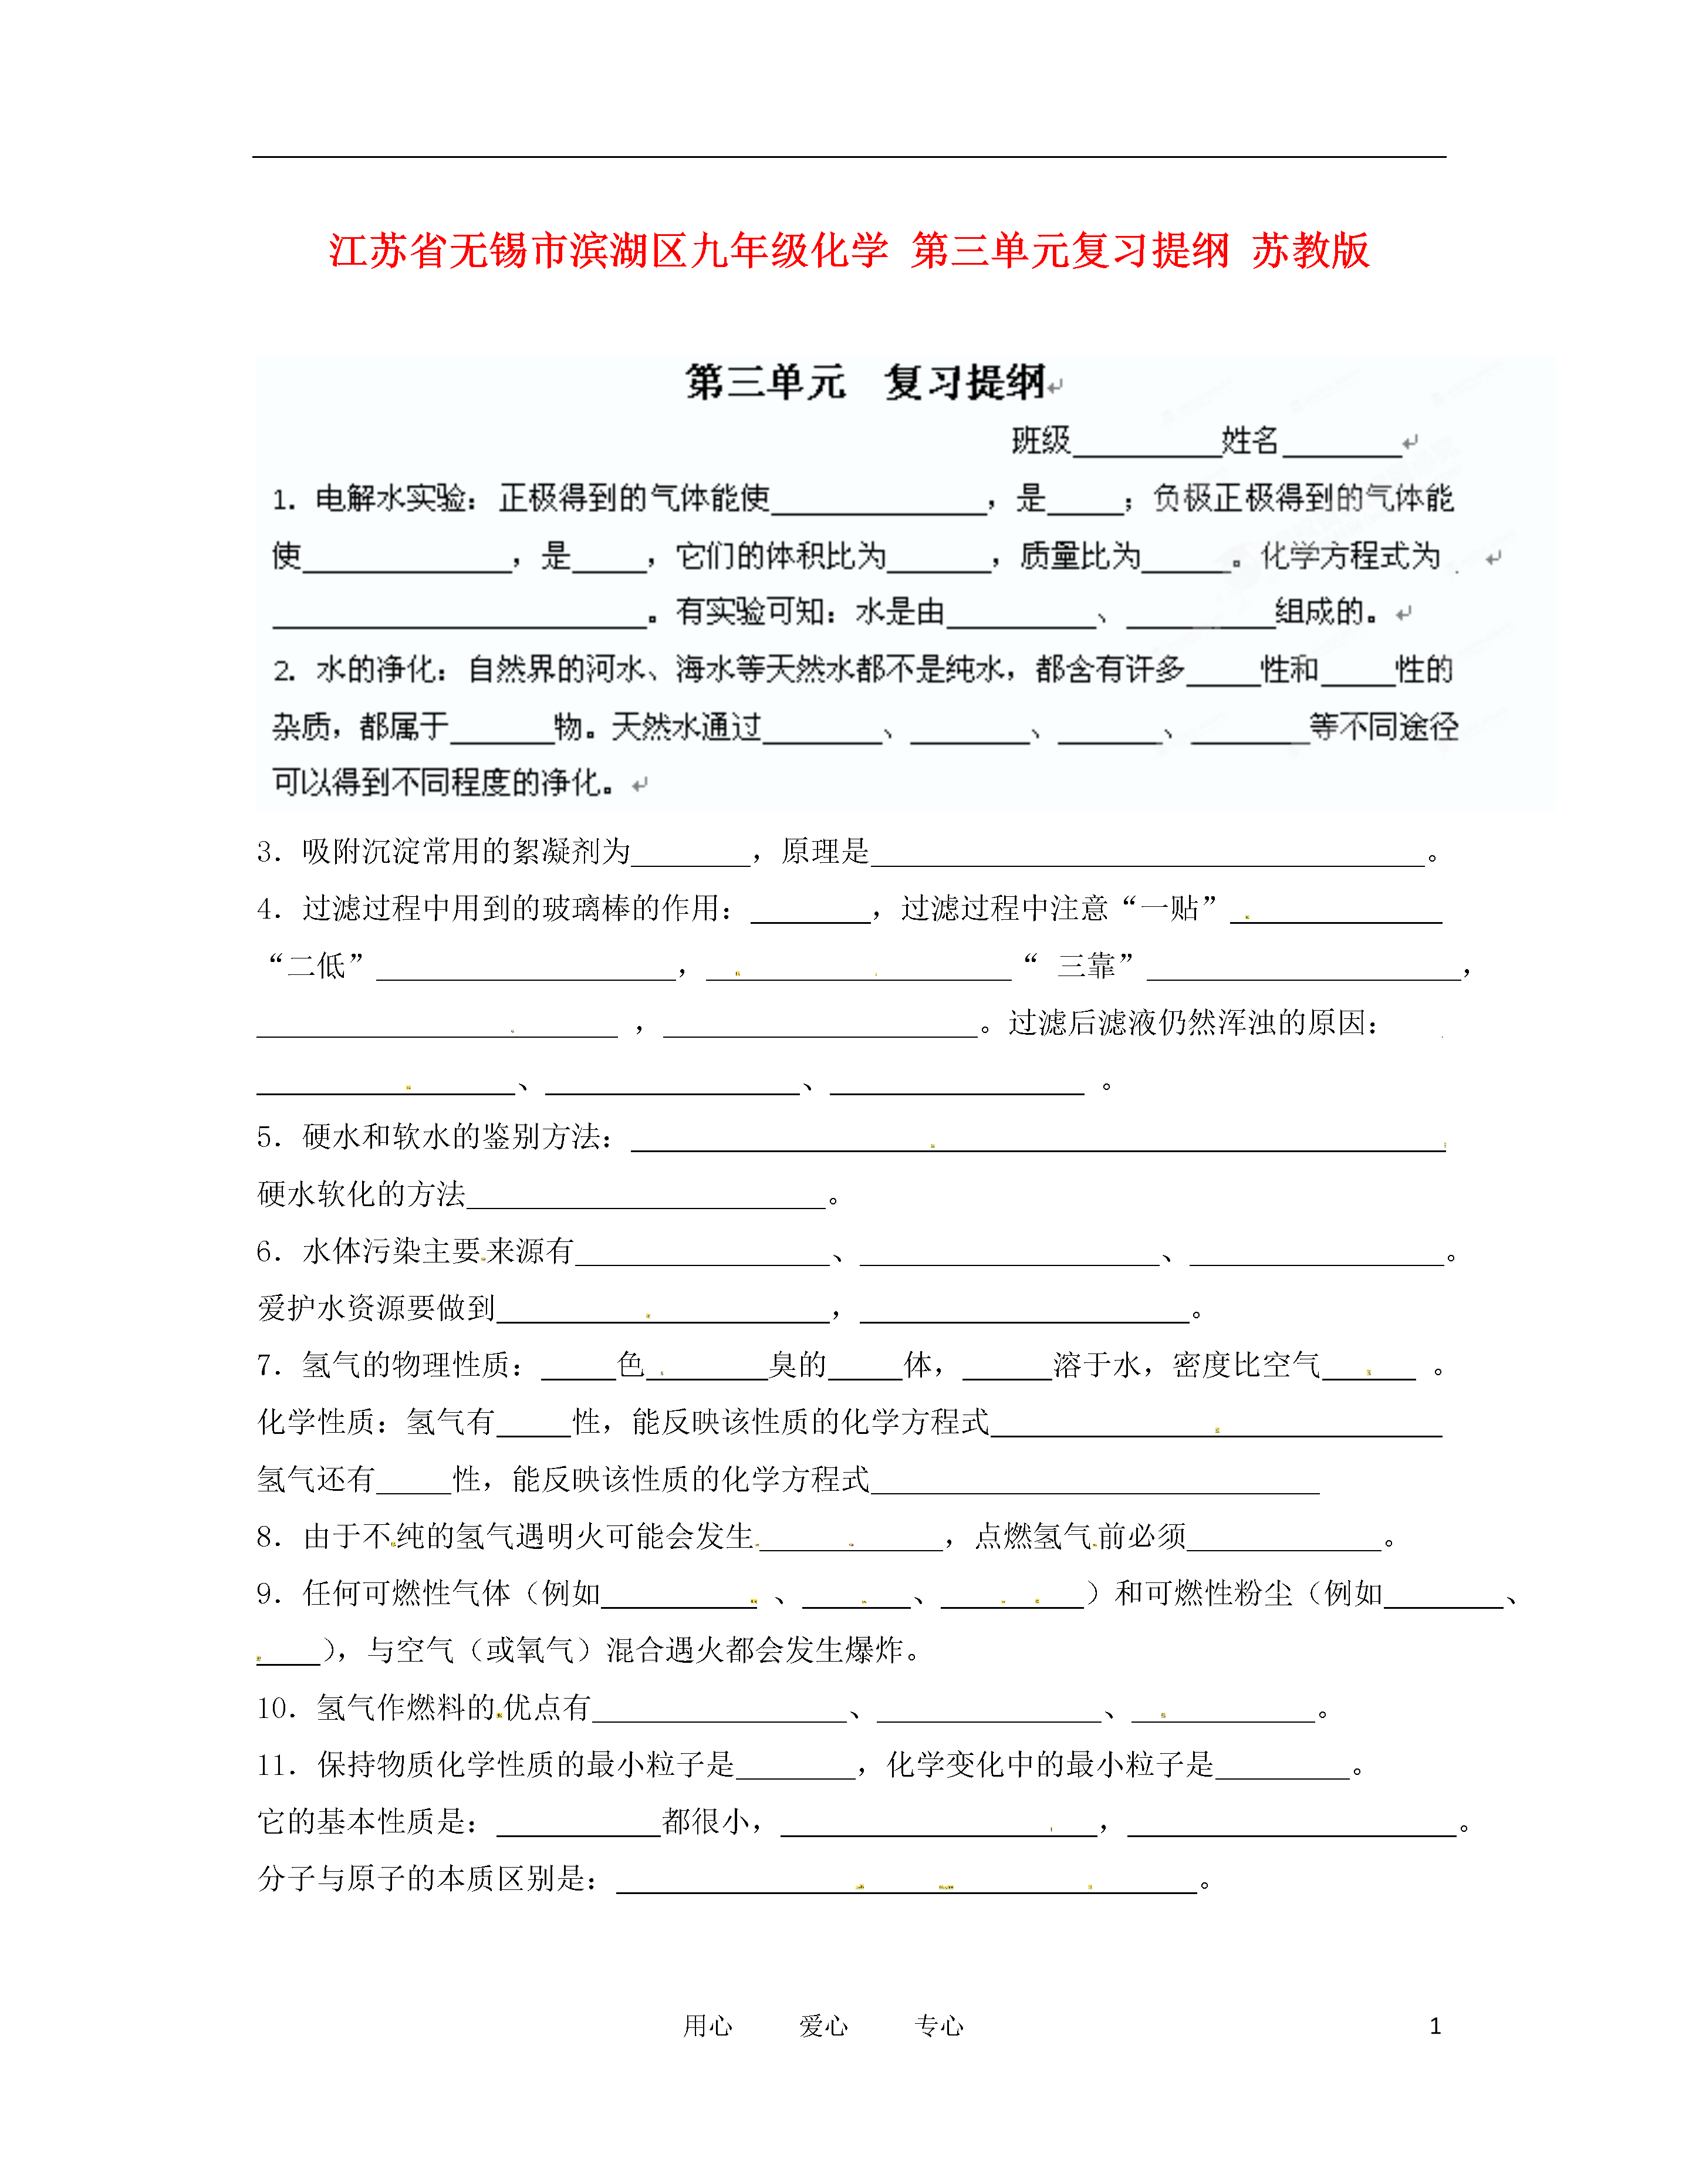 江苏省无锡市滨湖区九年级化学 第三单元复习提纲 苏教版
第三单元 复习提纲
班级__________姓名________
1. 电解水实验：正极得到的气体能使______________，是_____；负极正极得到的气体能
使______________，是_____，它们的体积比为_______，质量比为______。化学方程式为
_________________________。有实验可知：水是由__________、__________组成的。
2. 水的净化：自然界的河水、海水等天然水都不是纯水，都含有许多_____性和_____性的
杂质，都属于_______物。天然水通过________、________、_______、________等不同途径
可以得到不同程度的净化。
3．吸附沉淀常用的絮凝剂为________，原理是_____________________________________。
4．过滤过程中用到的玻璃棒的作用：________，过滤过程中注意“一贴”______________
“二低”____________________，____________________“ 三靠”_____________________，
________________________ ，_____________________。过滤后滤液仍然浑浊的原因：
_________________、_________________、_________________ 。
5．硬水和软水的鉴别方法：______________________________________________________
硬水软化的方法________________________。
6．水体污染主要来源有_________________、____________________、_________________。
爱护水资源要做到______________________，______________________。
7．氢气的物理性质：_____色________臭的_____体，______溶于水，密度比空气______ 。
化学性质：氢气有_____性，能反映该性质的化学方程式______________________________
氢气还有_____性，能反映该性质的化学方程式______________________________
8．由于不纯的氢气遇明火可能会发生____________，点燃氢气前必须_____________。
9．任何可燃性气体（例如__________ 、_______、_________）和可燃性粉尘（例如________、
____），与空气（或氧气）混合遇火都会发生爆炸。
10．氢气作燃料的优点有_________________、_______________、____________。
11．保持物质化学性质的最小粒子是________，化学变化中的最小粒子是_________。
它的基本性质是：___________都很小，_____________________，______________________。
分子与原子的本质区别是：_______________________________________。
用心 爱心 专心 1